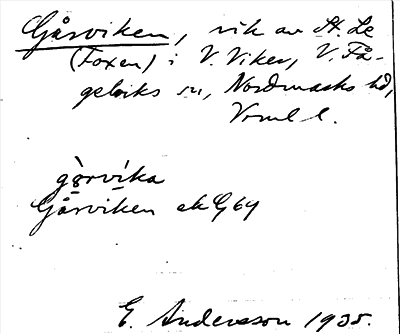 Gårviken, vik av St. Le
(Foxen) i V. Viker, V. Få-
gelviks sn, Nordmarks hd,
Vrml l.
gòrvíka
Gårviken ek G 69
E. Andersson 1935.